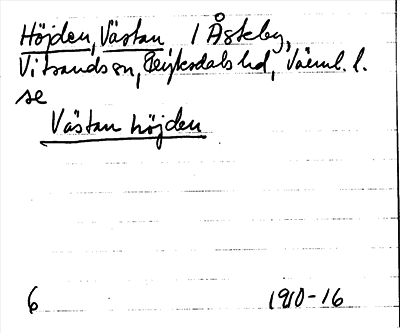 Höjden, Västan / Åsteby,
Vitsands sn, Älvdals hd, Värml. l.
se
Västan höjden
6 1910-16